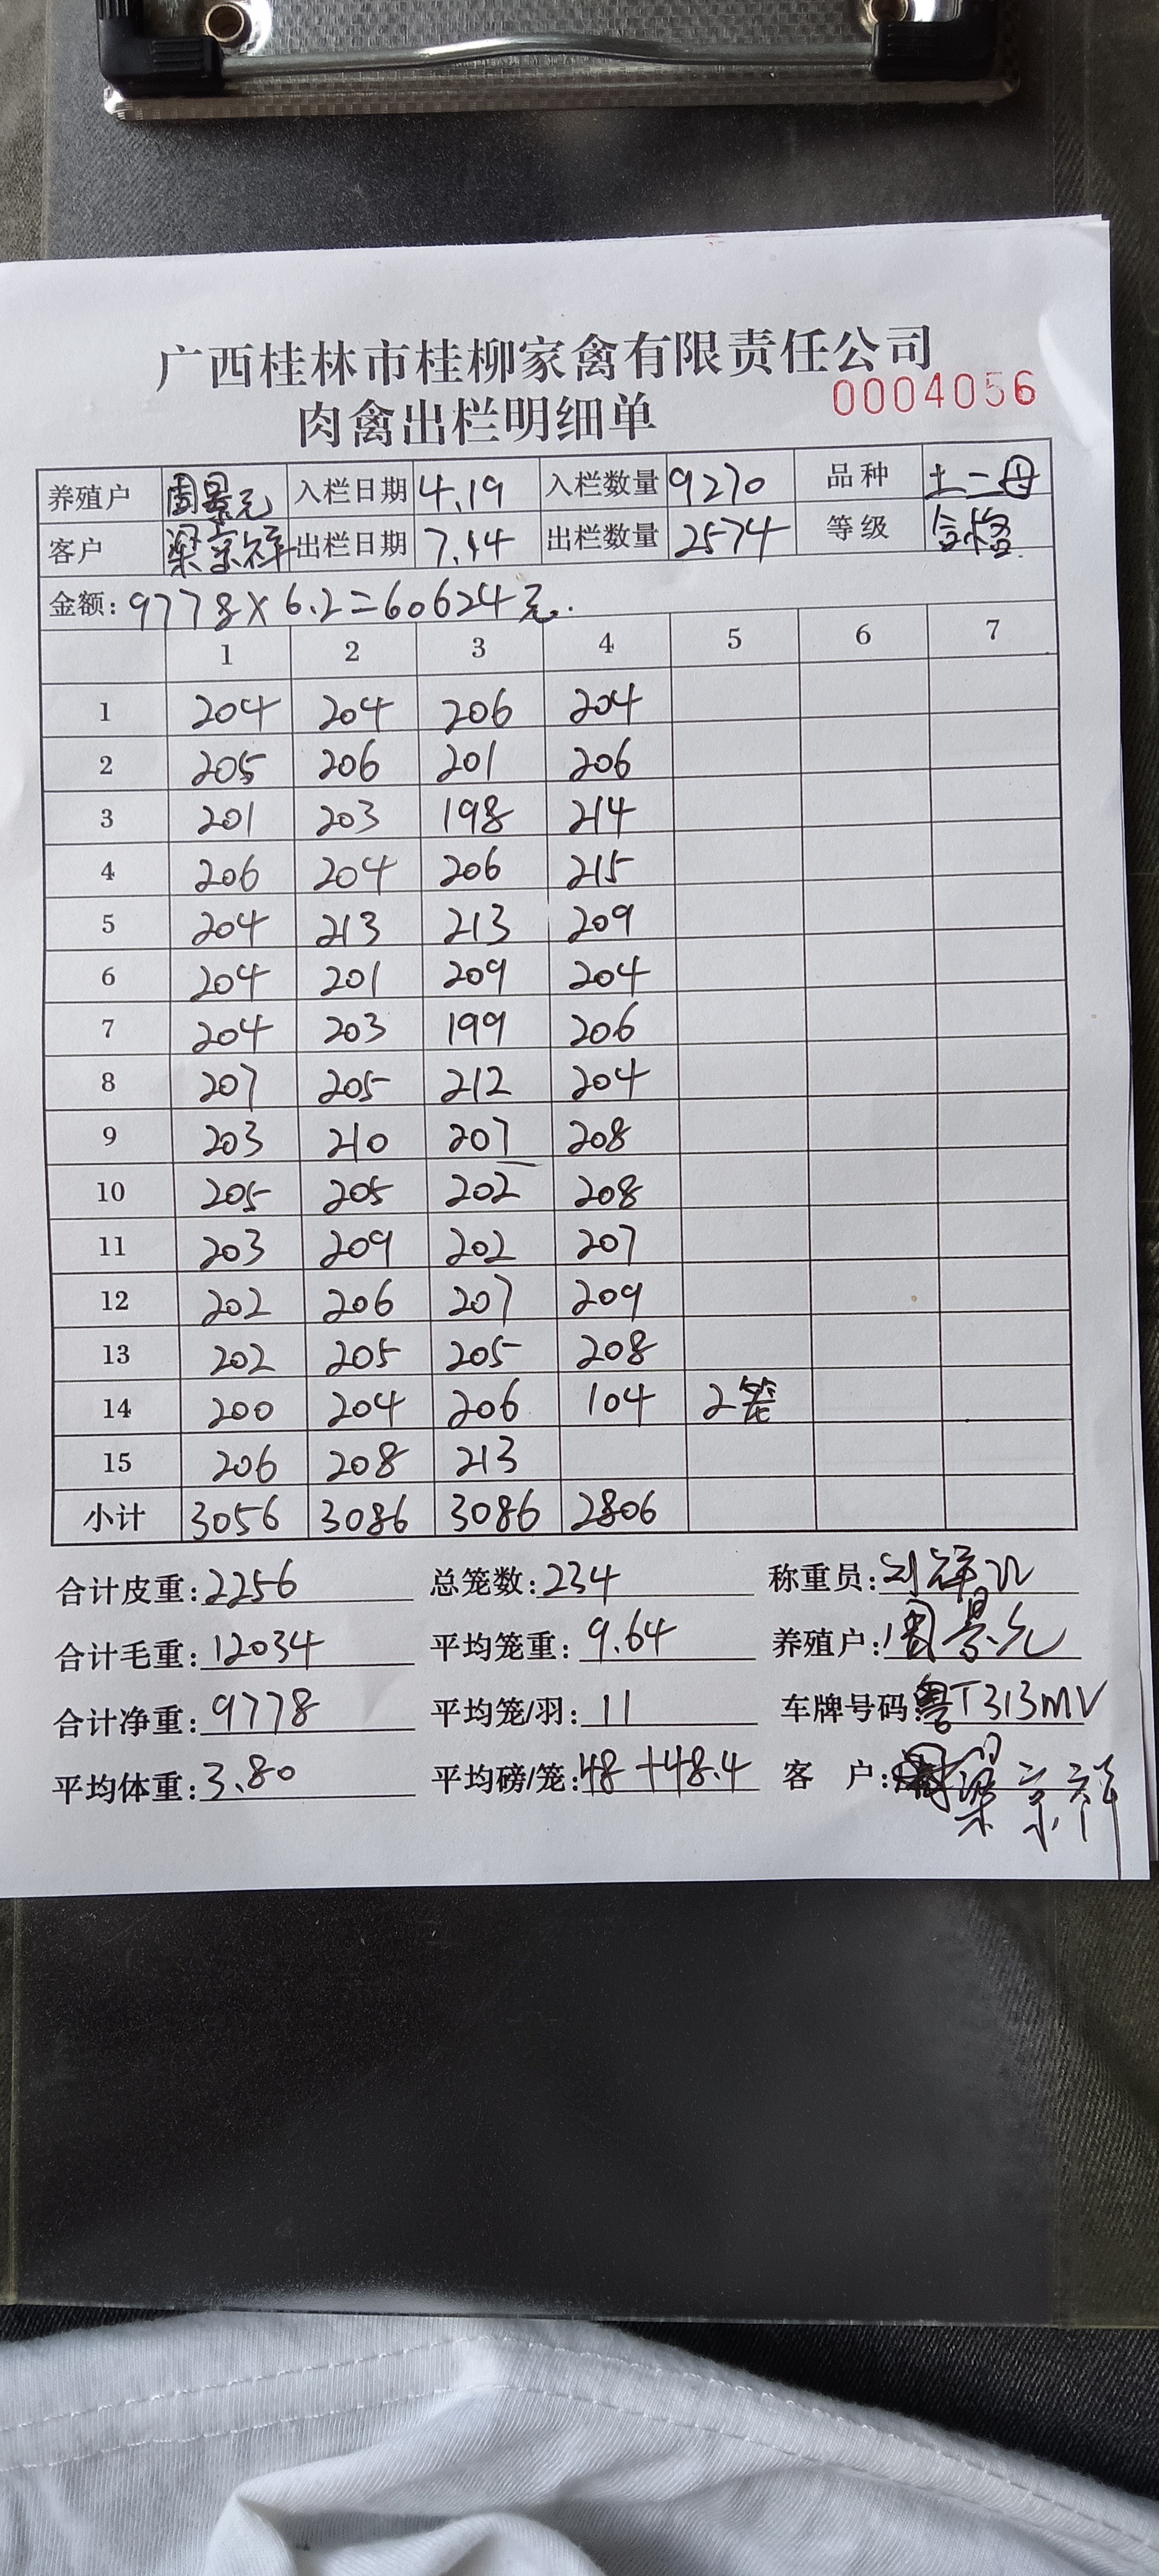 广西桂林市桂柳家禽有限责任公司
肉禽出栏明细单 0004056
养殖户 周景元 入栏日期 4.19 入栏数量 9270 品种 土二母
客户 梁宗祥 出栏日期 7.14 出栏数量 2574 等级 合格.
金额: 9778×6.2=60624元.
1 2 3 4 5 6 7
1 204 204 206 204
2 205 206 201 206
3 201 203 198 214
4 206 204 206 215
5 204 213 213 209
6 204 201 209 204
7 204 203 199 206
8 207 205 212 204
9 203 210 207 208
10 205 205 202 208
11 203 209 202 207
12 202 206 207 209
13 202 205 205 208
14 200 204 206 104 2笼
15 206 208 213
小计 3056 3086 3086 2806
合计皮重: 2256 总笼数: 234 称重员: 刘祥
合计毛重: 12034 平均笼重: 9.64 养殖户: 周景元
合计净重: 9778 平均笼/羽: 11 车牌号码: 粤T313MV
平均体重: 3.80 平均磅/笼: 48+48.4 客 户: 梁宗祥